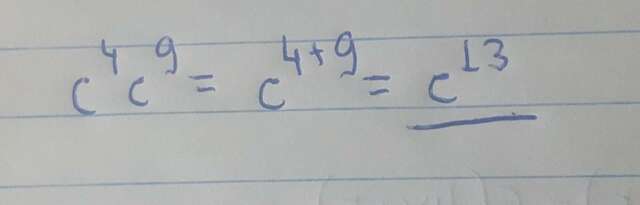 c⁴c⁹ = c⁴⁺⁹ = c¹³